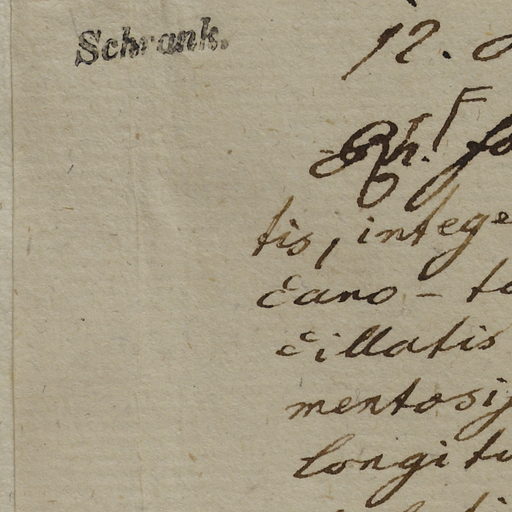 Schrank.
12.
Rh. fo
F
tis, intege
cano - to
cillatis
mentosij
longitu